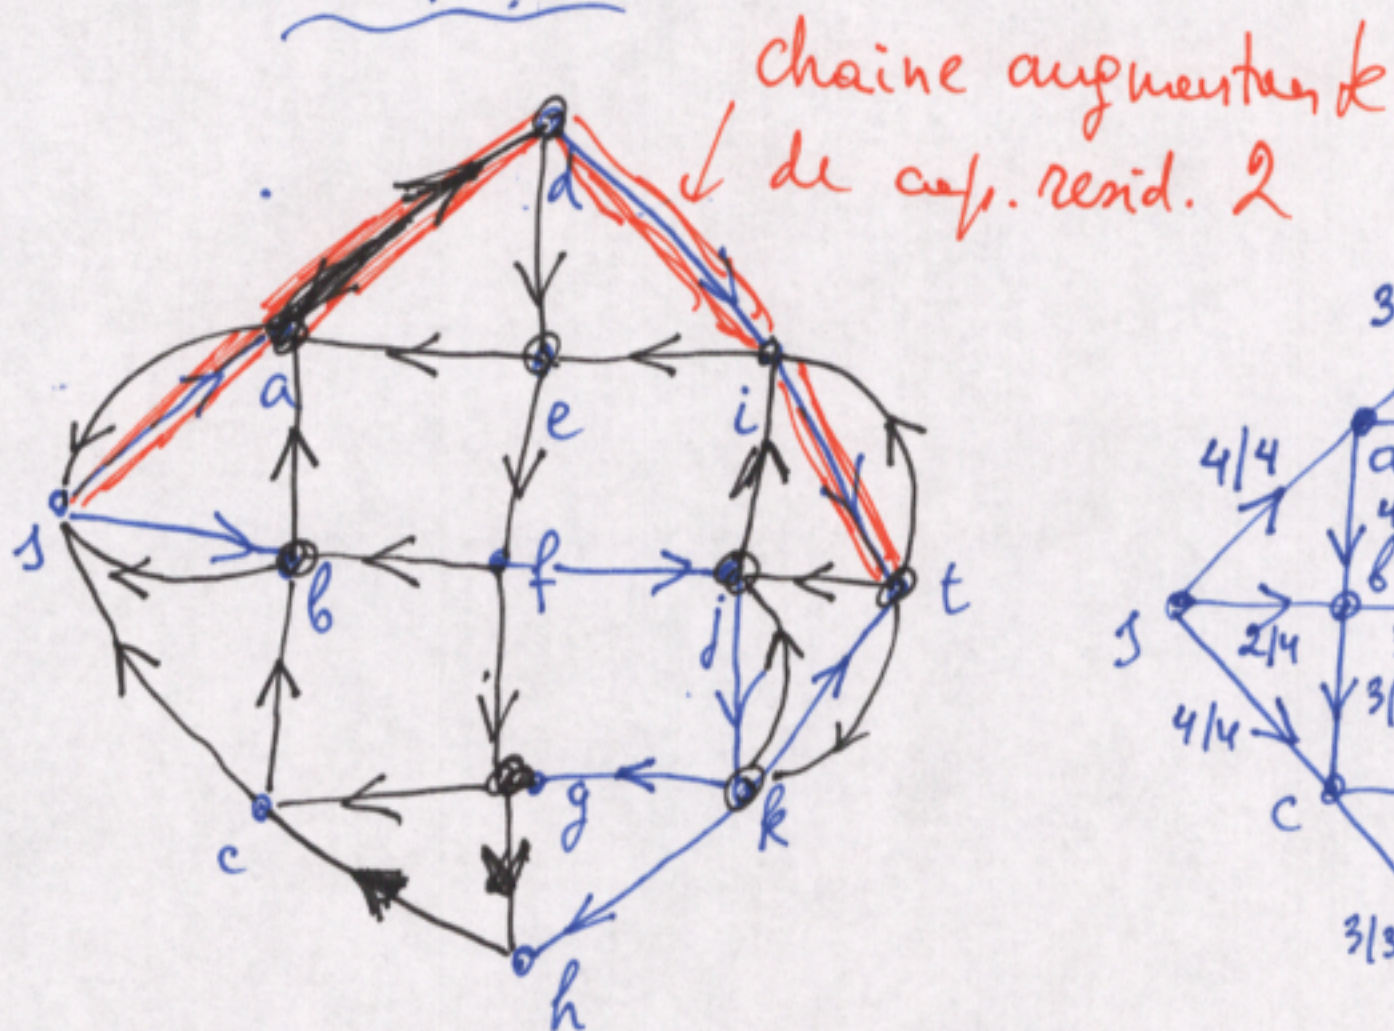 chaine augmentante
de cap. resid. 2
d
a
e
i
s
b
f
j
t
c
g
k
h
3
4/4
a
4
s
2/4
b
3/
4/4
c
3/3